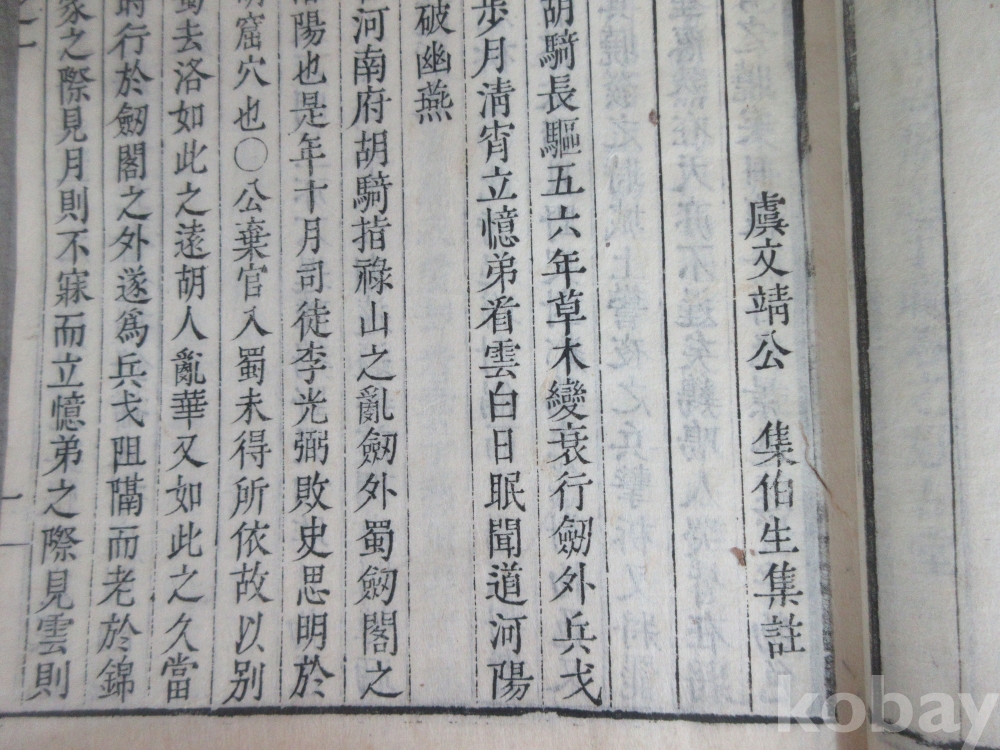 虞文靖公 集伯生集註
胡騎長驅五六年草木變衰行劒外兵戈
步月清宵立憶弟看雲白日眠聞道河陽
破幽燕
河南府胡騎指祿山之亂劒外蜀劒閣之
洛陽也是年十月司徒李光弼敗史思明於
窟穴也〇公棄官入蜀未得所依故以別
蜀去洛如此之遠胡人亂華又如此之久當
時行於劒閣之外遂爲兵戈阻隔而老於錦
家之際見月則不寐而立憶弟之際見雲則
一
kobay